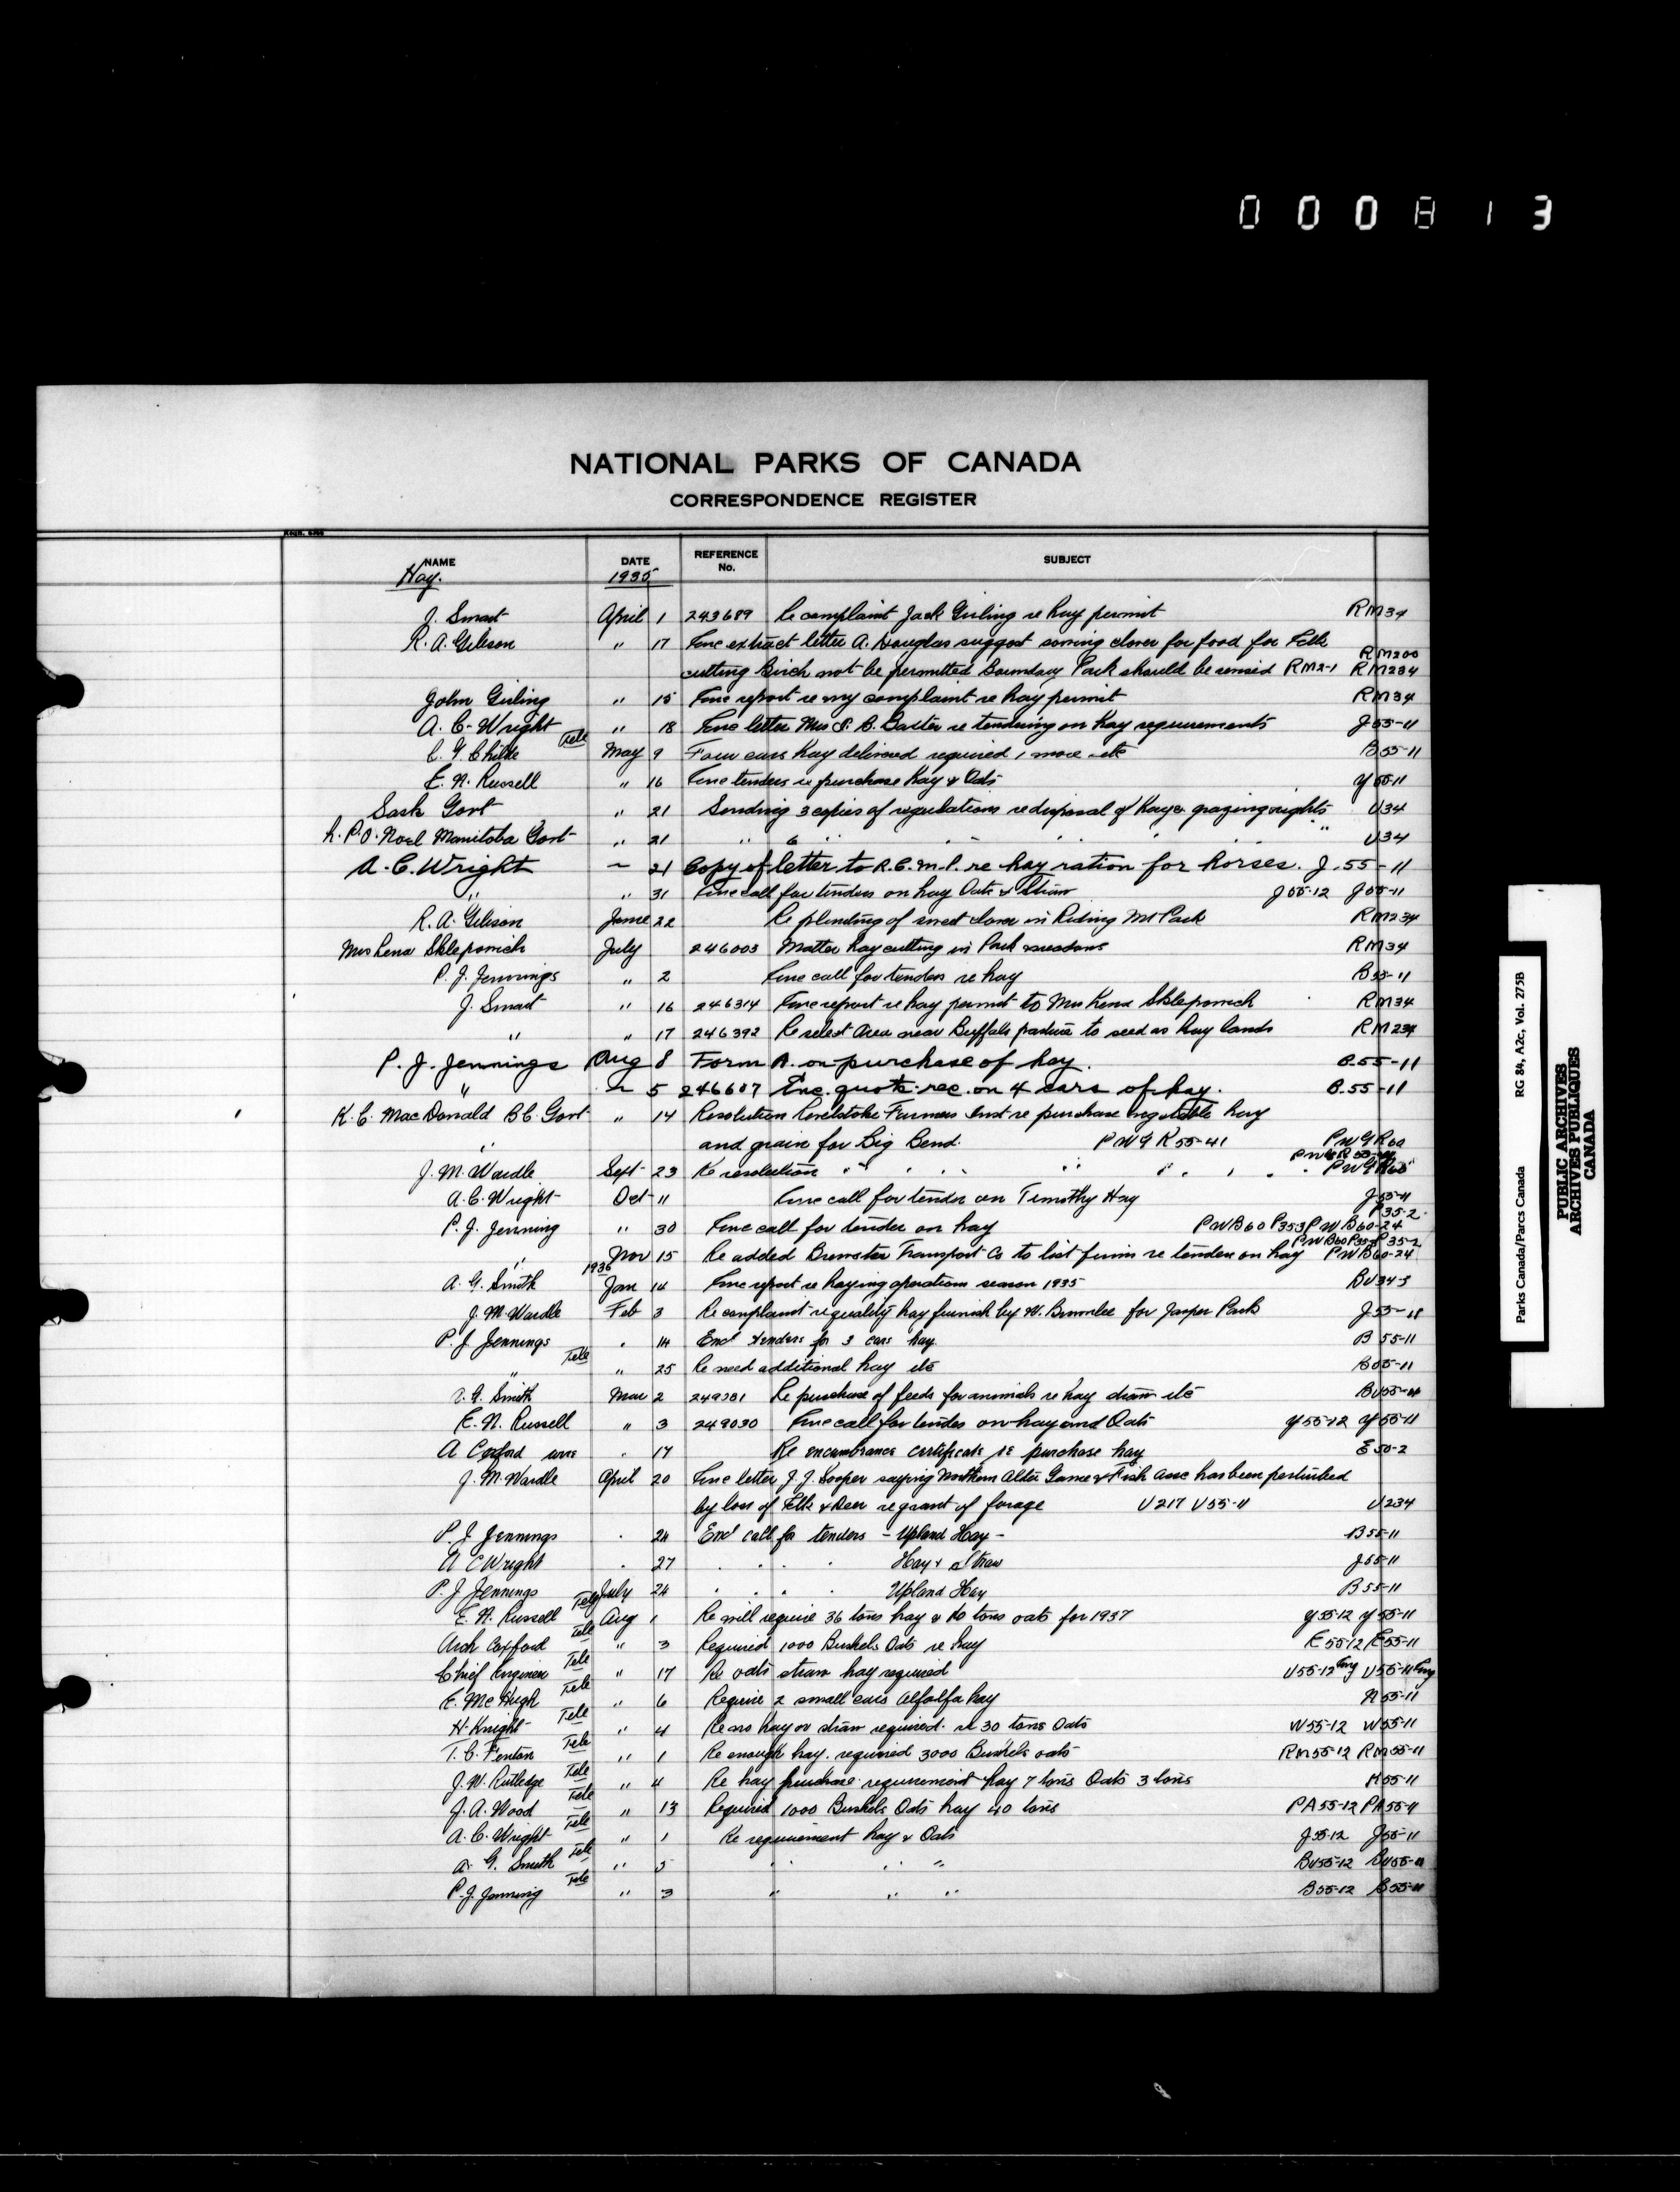 000813
NATIONAL PARKS OF CANADA
CORRESPONDENCE REGISTER
NAME DATE REFERENCE No. SUBJECT
Hay. 1935
J. Smart April 1 243689 Re complaint Jack Girling re hay permit RM34
R. A. Gibson " 17 Enc extract letter A. Douglas suggest sowing clover for food for Elk RM200
cutting Birch not be permitted Boundary Park should be RM2-1 RM234
John Girling " 15 Enc report re my complaint re hay permit RM34
A. C. Wright " 18 Enc letter Mrs S. B. Baxter re tendering on hay requirements J55-11
C. G. Childe Tele May 9 Four cars hay delivered required 1 more etc B55-11
E. N. Russell " 16 Enc tenders re purchase Hay & Oats Y55-11
Sask Govt " 21 Sending 3 copies of regulations re disposal of Hay & grazing rights U34
L. P. O. Noel Manitoba Govt " 21 " 6 " " " " " U34
A. C. Wright " 21 Copy of letter to R.C.M.P. re hay ration for horses. J.55-11
" " 31 Enc call for tenders on hay Oats & Straw J55-12 J55-11
R. A. Gibson June 22 Re planting of sweet clover in Riding Mt Park RM234
Mrs Lena Skleponich July 246003 Matter hay cutting in Park meadows RM34
P. J. Jennings " 2 Enc call for tenders re hay B55-11
J. Smart " 16 246314 Enc report re hay permit to Mrs Lena Skleponich RM34
" " 17 246392 Re select Area near Buffalo pasture to seed as hay lands RM234
P. J. Jennings Aug 8 Form A. on purchase of hay. B.55-11
" " 5 246607 Enc. quots. rec. on 4 cars of hay. B.55-11
K. C. MacDonald B C Govt " 14 Resolution Revelstoke Farmers Inst re purchase vegetable hay
and grain for Big Bend. PWGR55-41 PWGR60
J. M. Wardle Sept 23 Re resolution " " " " " " PWGR60
A. C. Wright Oct 11 Enc call for tender on Timothy Hay J55-11
P. J. Jenning " 30 Enc call for tender on hay PWB60 P353 PWB60-24 P35-2
" Nov 15 Re added Brewster Transport Co to list firms re tenders on hay PWB60 P35-3 P35-2 PWB60-24
1936
A. G. Smith Jan 14 Enc report re haying operations season 1935 BU343
J. M. Wardle Feb 3 Re complaint re quality hay furnish by W. Brownlee for Jasper Park J55-11
P. J. Jennings " 14 Encl tenders for 3 cars hay. B 55-11
" Tele " 25 Re need additional hay etc B55-11
A. G. Smith Mar 2 249281 Re purchase of feeds for animals re hay straw etc BU55-11
E. N. Russell " 3 249030 Enc call for tender on hay and Oats Y55-12 Y55-11
A Coxford wire " 17 Re encumbrance certificate re purchase hay E50-2
J. M. Wardle April 20 Enc letter J. J. Soper saying Northern Alta Game & Fish Assc has been perturbed
by loss of Elk & Deer re grant of forage U217 U55-11 U234
P. J. Jennings " 24 Encl call for tenders - Upland Hay - B55-11
A C Wright " 27 " " " " Hay & Straw J55-11
P. J. Jennings July 24 " " " " Upland Hay B55-11
E. N. Russell Tele Aug 1 Re will require 36 tons hay & 10 tons oats for 1937 Y55-12 Y55-11
Arch Coxford Tele " 3 Required 1000 Bushels Oats re hay E55-12 E55-11
Chief Engineer Tele " 17 Re oats straw hay required U55-12 Eng U55-11 Eng
E. McHugh Tele " 6 Require 2 small cars alfalfa hay N55-11
H. Knight Tele " 4 Re no hay or straw required. re 30 tons Oats W55-12 W55-11
T. C. Fenton Tele " 1 Re enough hay. required 3000 Bushels oats RM55-12 RM55-11
J. W. Rutledge Tele " 4 Re hay purchase requirement hay 7 tons Oats 3 tons K55-11
J. A. Wood Tele " 13 Required 1000 Bushels Oats hay 40 tons PA55-12 PA55-11
A. C. Wright Tele " 1 Re requirement hay & Oats J55-12 J55-11
A. G. Smith Tele " 5 " " " BU55-12 BU55-11
P. J. Jenning Tele " 3 " " " B55-12 B55-11
Parks Canada/Parcs Canada RG 84, A2c, Vol. 275B
PUBLIC ARCHIVES
ARCHIVES PUBLIQUES
CANADA